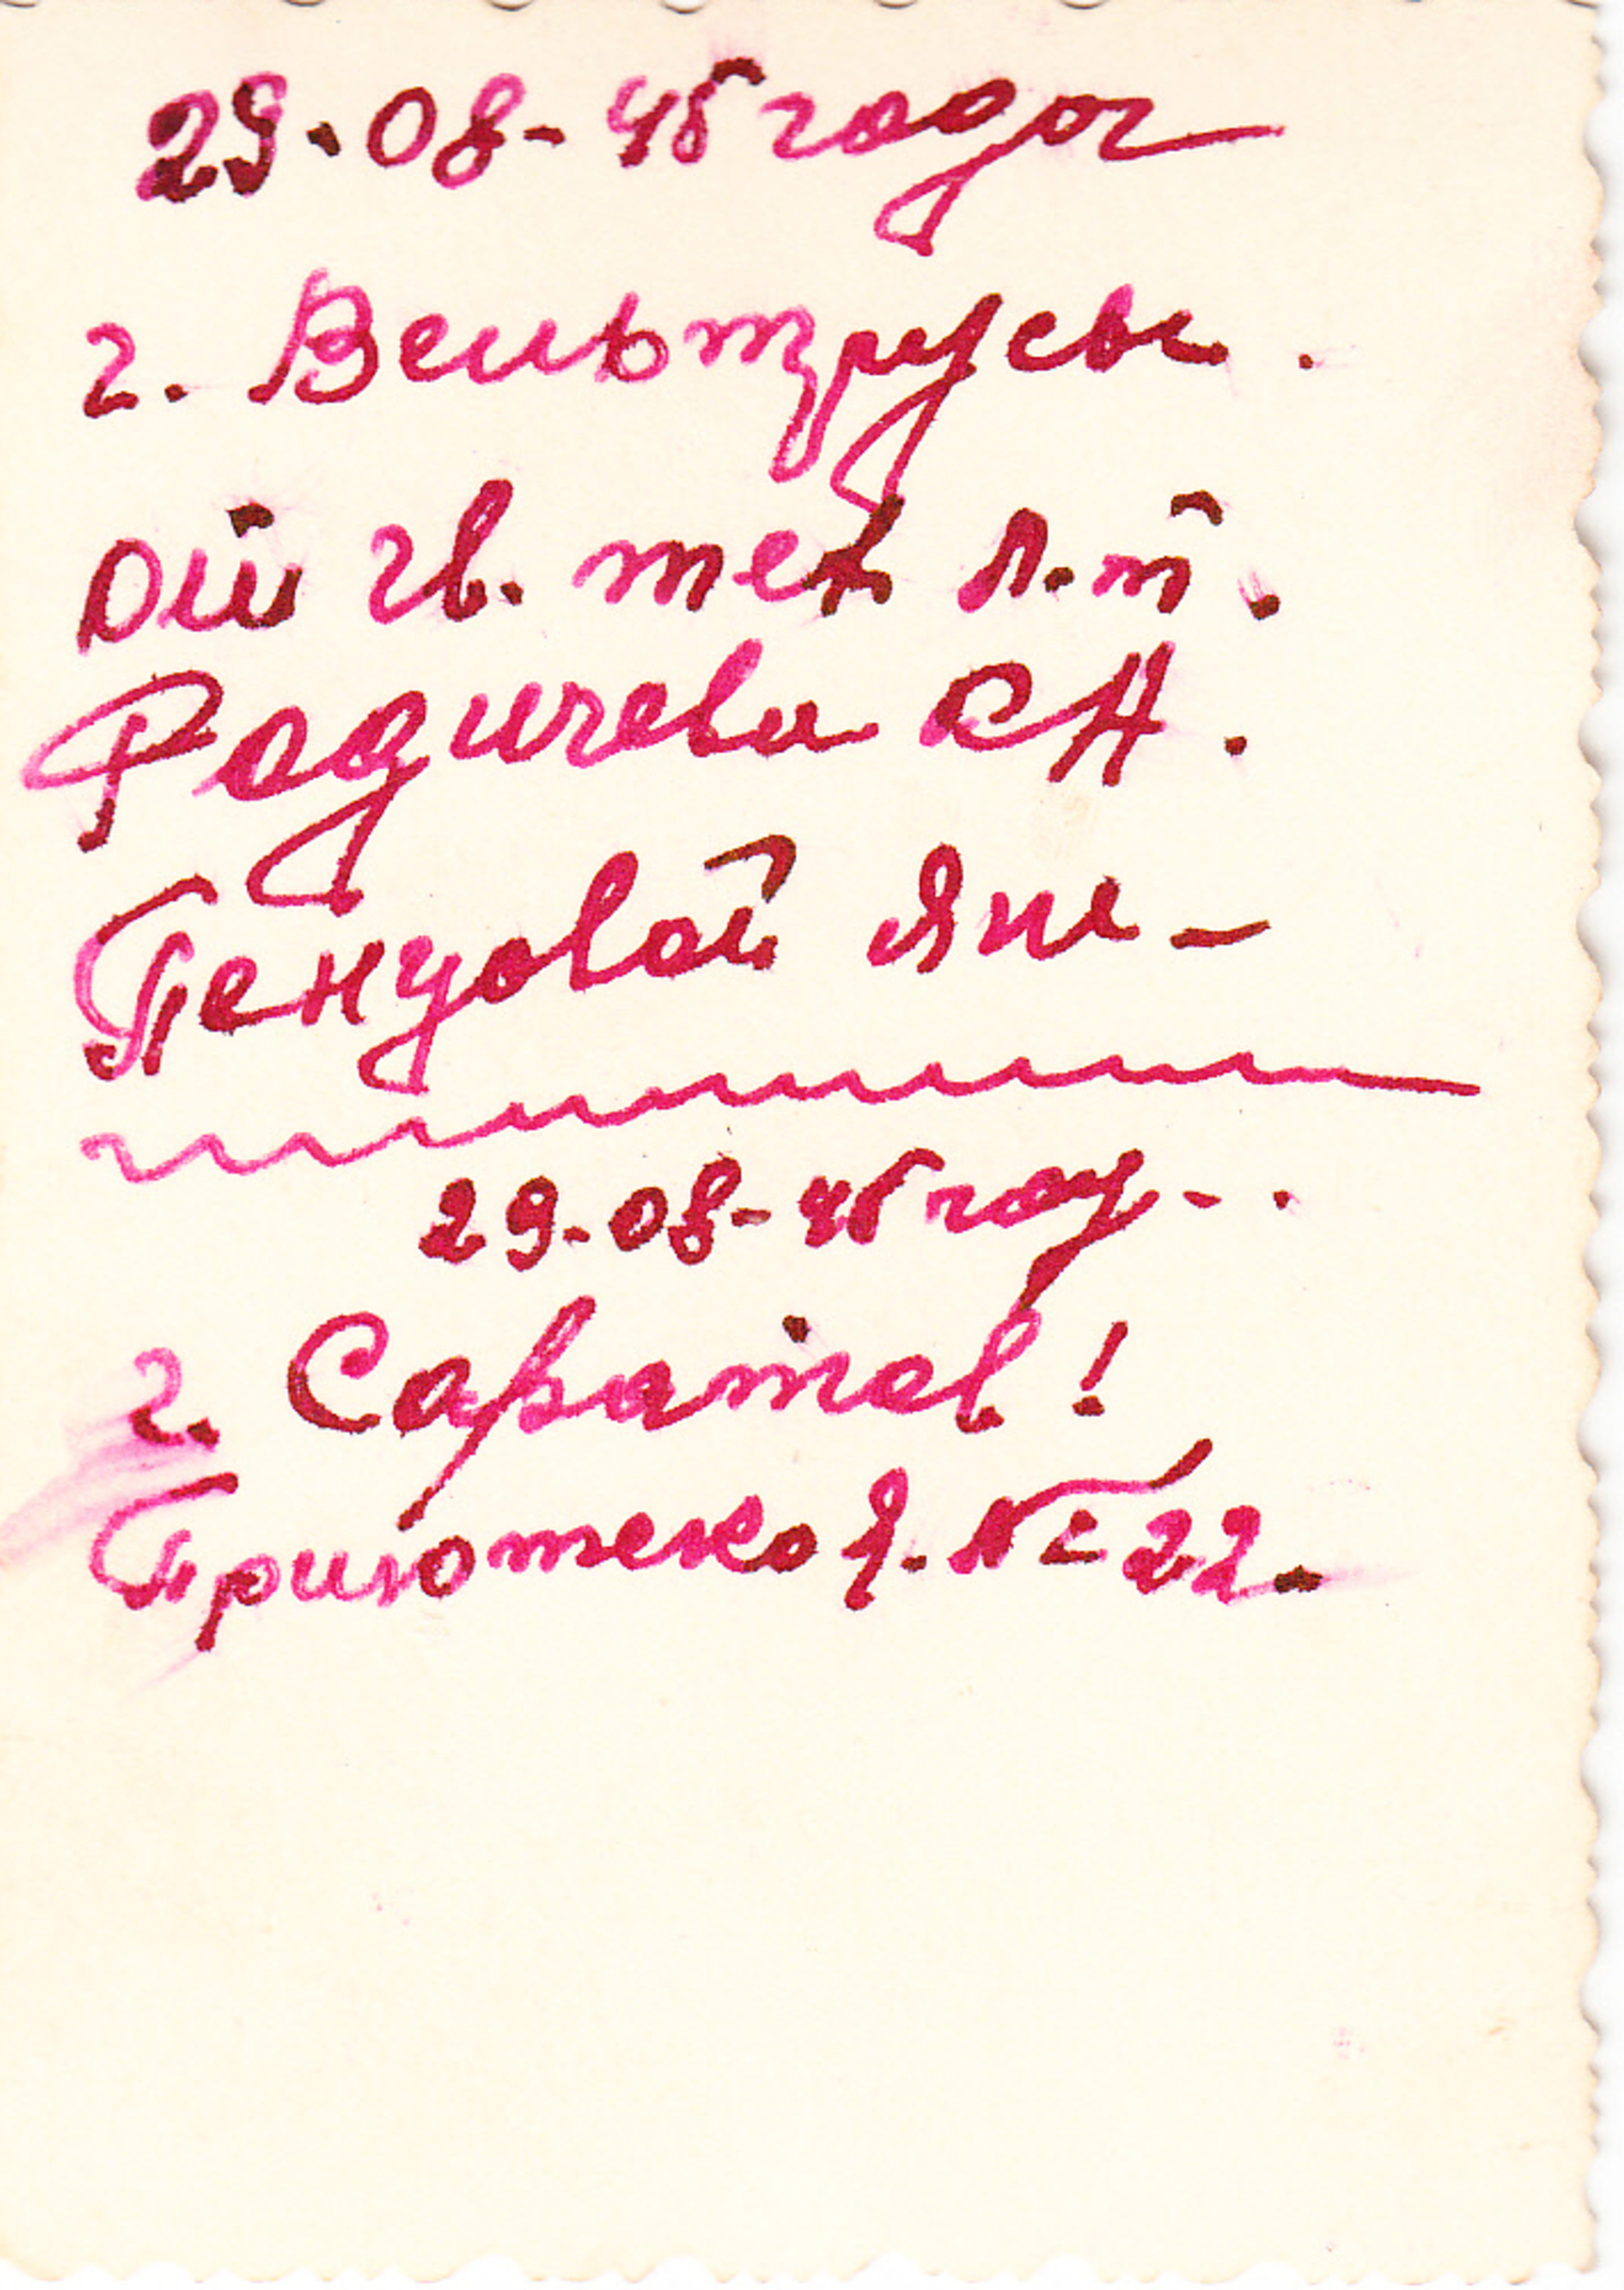 29-08-45 года
г. Вельтрусы.
От гв. тех л-т.
Родичева С Н.
Пенцовой Яне -
29-08-45 год - .
г. Саратов!
Приютско Я. № 22.